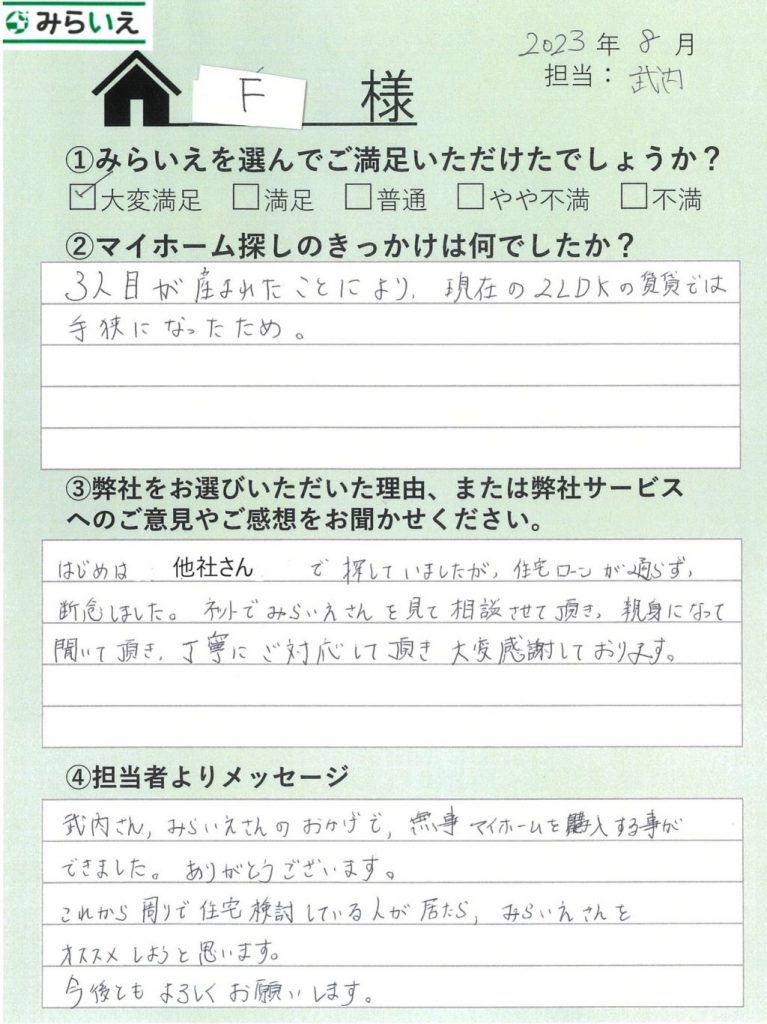 みらいえ
2023年 8月
担当：武内
F 様
①みらいえを選んでご満足いただけたでしょうか？
大変満足 満足 普通 やや不満 不満
②マイホーム探しのきっかけは何でしたか？
3人目が産まれたことにより、現在の2LDKの賃貸では
手狭になったため。
③弊社をお選びいただいた理由、または弊社サービス
へのご意見やご感想をお聞かせください。
はじめは 他社さん で探していましたが、住宅ローンが通らず、
断念しました。ネットでみらいえさんを見て相談させて頂き、親身になって
聞いて頂き、丁寧にご対応して頂き大変感謝しております。
④担当者よりメッセージ
武内さん、みらいえさんのおかげで、無事マイホームを購入する事が
できました。ありがとうございます。
これから周りで住宅検討している人が居たら、みらいえさんを
オススメしようと思います。
今後ともよろしくお願いします。